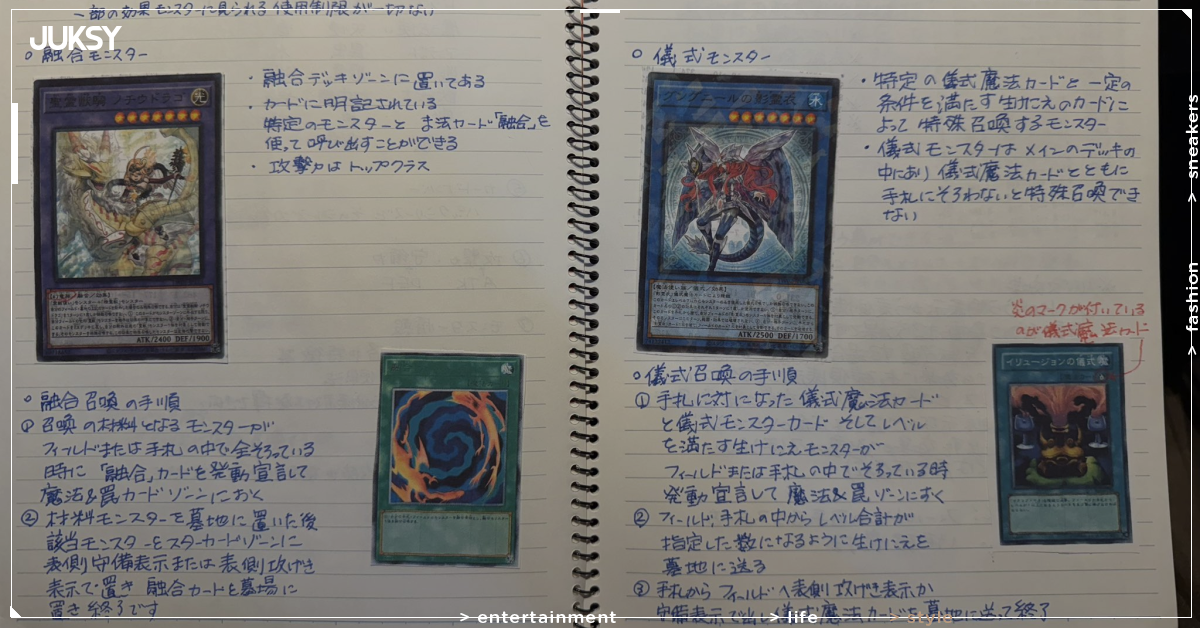 一部の効果モンスターに見られる使用制限が一切ない
JUKSY
○ 融合モンスター
ノチウドラゴ
光
ATK/2400 DEF/1900
・融合デッキゾーンに置いてある
・カードに明記されている
特定のモンスターと ま法カード「融合」を
使って呼び出すことができる
・攻撃力はトップクラス
○ 融合召喚の手順
① 召喚の材料となるモンスターが
フィールドまたは手札の中で全そろっている
時に「融合」カードを発動宣言して
魔法&罠カードゾーンにおく
② 材料モンスターを墓地に置いた後
該当モンスターをスターカードゾーンに
表側守備表示または表側攻げき
表示で置き 融合カードを墓場に
置き終了です
○ 儀式モンスター
グングニールの影霊衣
水
ATK/2500 DEF/1700
・特定の儀式魔法カードと一定の
条件を満たす生けにえのカードに
よって特殊召喚するモンスター
・儀式モンスターはメインのデッキの
中にあり儀式魔法カードとともに
手札にそろわないと特殊召喚でき
ない
炎のマークが付いている
のが儀式魔法カード
イリュージョンの儀式
○儀式召喚の手順
① 手札に対になった儀式魔法カード
と儀式モンスターカード そしてレベル
を満たす生けにえモンスターが
フィールドまたは手札の中でそろっている時
発動宣言して魔法&罠ゾーンにおく
② フィールド、手札の中からレベル合計が
指定した数になるように生けにえを
墓地に送る
③ 手札からフィールドへ表側攻げき表示か
守備表示で出し儀式魔法カードを墓地に送って終了
> entertainment > life > style > fashion > sneakers